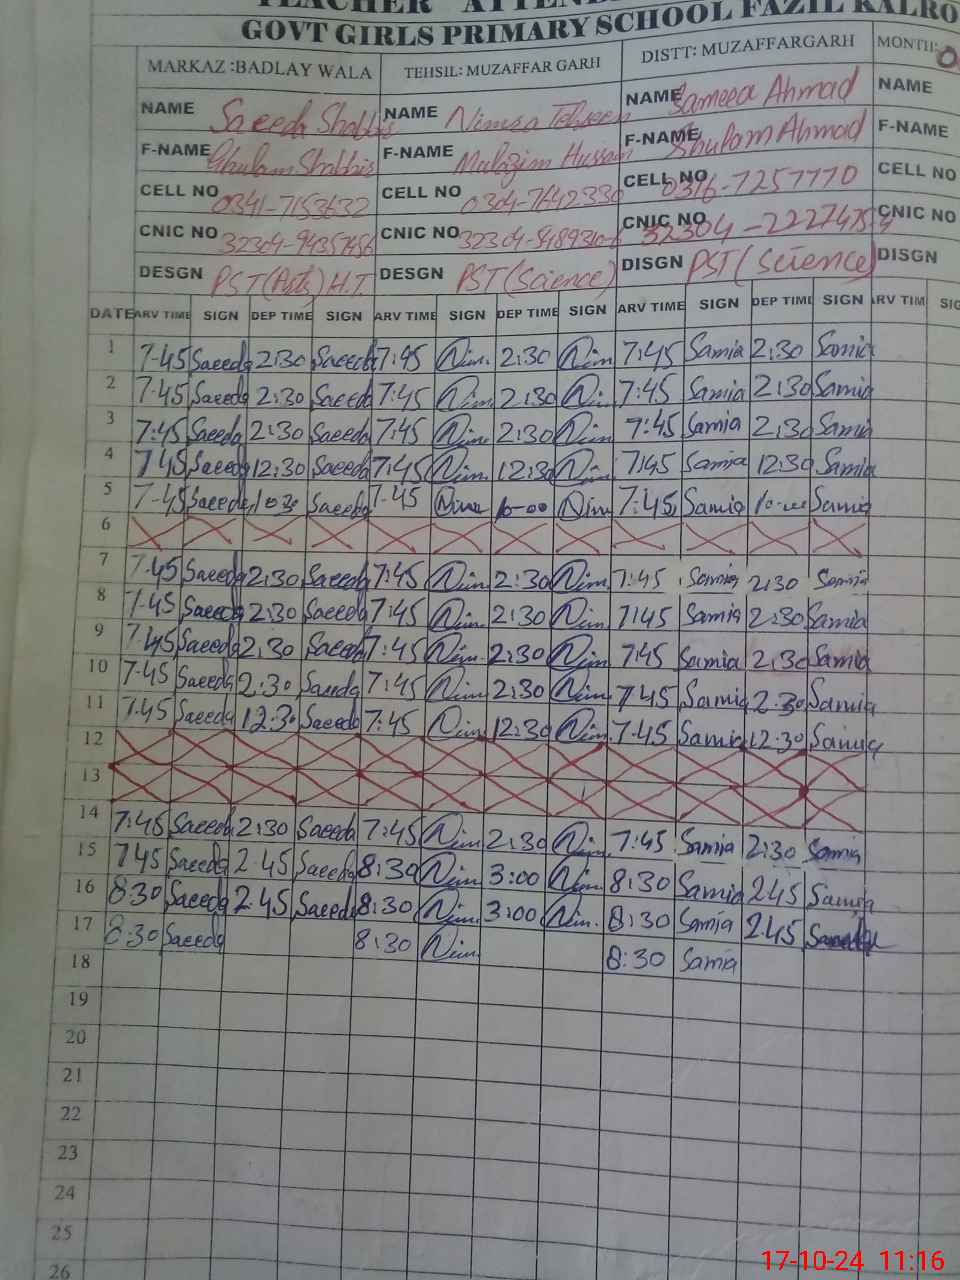 TEACHER ATTEND
GOVT GIRLS PRIMARY SCHOOL FAZIL KALRO
MARKAZ :BADLAY WALA TEHSIL: MUZAFFAR GARH DISTT: MUZAFFARGARH MONTH:
NAME Saeeda Shabbis NAME Nimsa Tehseen NAME Sameea Ahmad NAME
F-NAME Ghulam Shabbis F-NAME Mulazim Hussain F-NAME Ghulam Ahmad F-NAME
CELL NO CELL NO CELL NO CELL NO
CNIC NO CNIC NO CNIC NO CNIC NO
DESGN PST(Arts) H.T. DESGN PST(Science) DISGN PST(Science) DISGN
DATE ARV TIME SIGN DEP TIME SIGN ARV TIME SIGN DEP TIME SIGN ARV TIME SIGN DEP TIME SIGN ARV TIM SIG
1 7-45 Saeeda 2:30 Saeeda 7:45 Nim. 2:30 Nim 7:45 Samia 2:30 Samia
2 7-45 Saeeda 2:30 Saeeda 7:45 Nim. 2:30 Nim. 7:45 Samia 2:30 Samia
3 7:45 Saeeda 2:30 Saeeda 7:45 Nim. 2:30 Nim. 7:45 Samia 2:30 Samia
4 7 45 Saeeda 12:30 Saeeda 7:45 Nim. 12:30 Nim. 7:45 Samia 12:30 Samia
5 7-45 Saeeda Saeeda 7-45 10-00 Nim 7:45 Samia Samia
6
7 7.45 Saeeda 2:30 Saeeda 7:45 Nim 2:30 Nim. 7:45 Samia 2:30 Samia
8 7.45 Saeeda 2:30 Saeeda 7:45 Nim. 2:30 Nim. 7:45 Samia 2:30 Samia
9 7.45 Saeeda 2:30 Saeeda 7:45 Nim. 2:30 Nim. 7:45 Samia 2:30 Samia
10 7-45 Saeeda 2:30 Saeeda 7:45 Nim. 2:30 Nim. 7 45 Samia 2:30 Samia
11 7.45 Saeeda 12:30 Saeeda 7:45 Nim 12:30 Nim. 7.45 Samia 12:30 Samia
12
13
14 7:45 Saeeda 2:30 Saeeda 7:45 Nim 2:30 Nim. 7:45 Samia 2:30 Samia
15 7 45 Saeeda 2.45 Saeeda 8:30 Nim 3:00 Nim. 8:30 Samia 2.45 Samia
16 8:30 Saeeda 2.45 Saeeda 8:30 Nim. 3:00 Nim. 8:30 Samia 2.45
17 8:30 Saeeda 8:30 Nim. 8:30 Samia
18
19
20
21
22
23
24
25
26
17-10-24 11:16